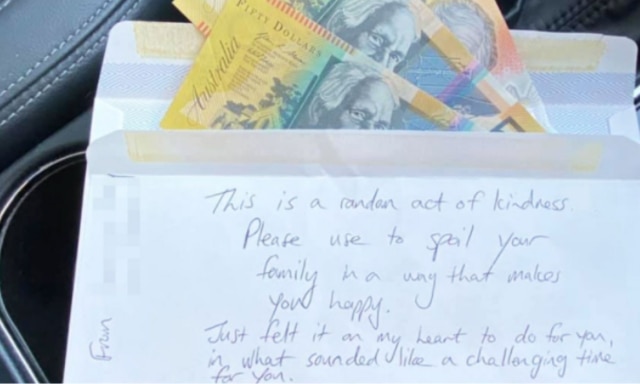 FIFTY DOLLARS
Australia
This is a randon act of kindness.
Please use to spoil your
family in a way that makes
you happy.
Just felt it on my heart to do for you,
in what sounded like a challenging time
for you.
From